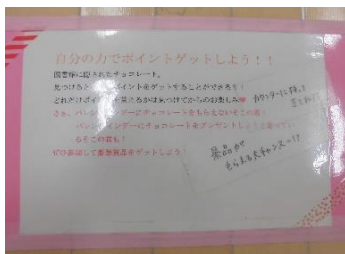 自分の力でポイントゲットしよう！！
図書館に隠されたチョコレート。
見つけると ポイントをゲットすることができます！
どれだけポイントを貰えるかは見つけてからのお楽しみ
カウンターに
さぁ、バレンタインデーにチョコレートをもらえないそこの君！
バレンタインデーにチョコレートをプレゼントしようと思ってい
るそこの君も！
ぜひ参加して豪華賞品をゲットしよう！
景品が
もらえる大チャンス！！